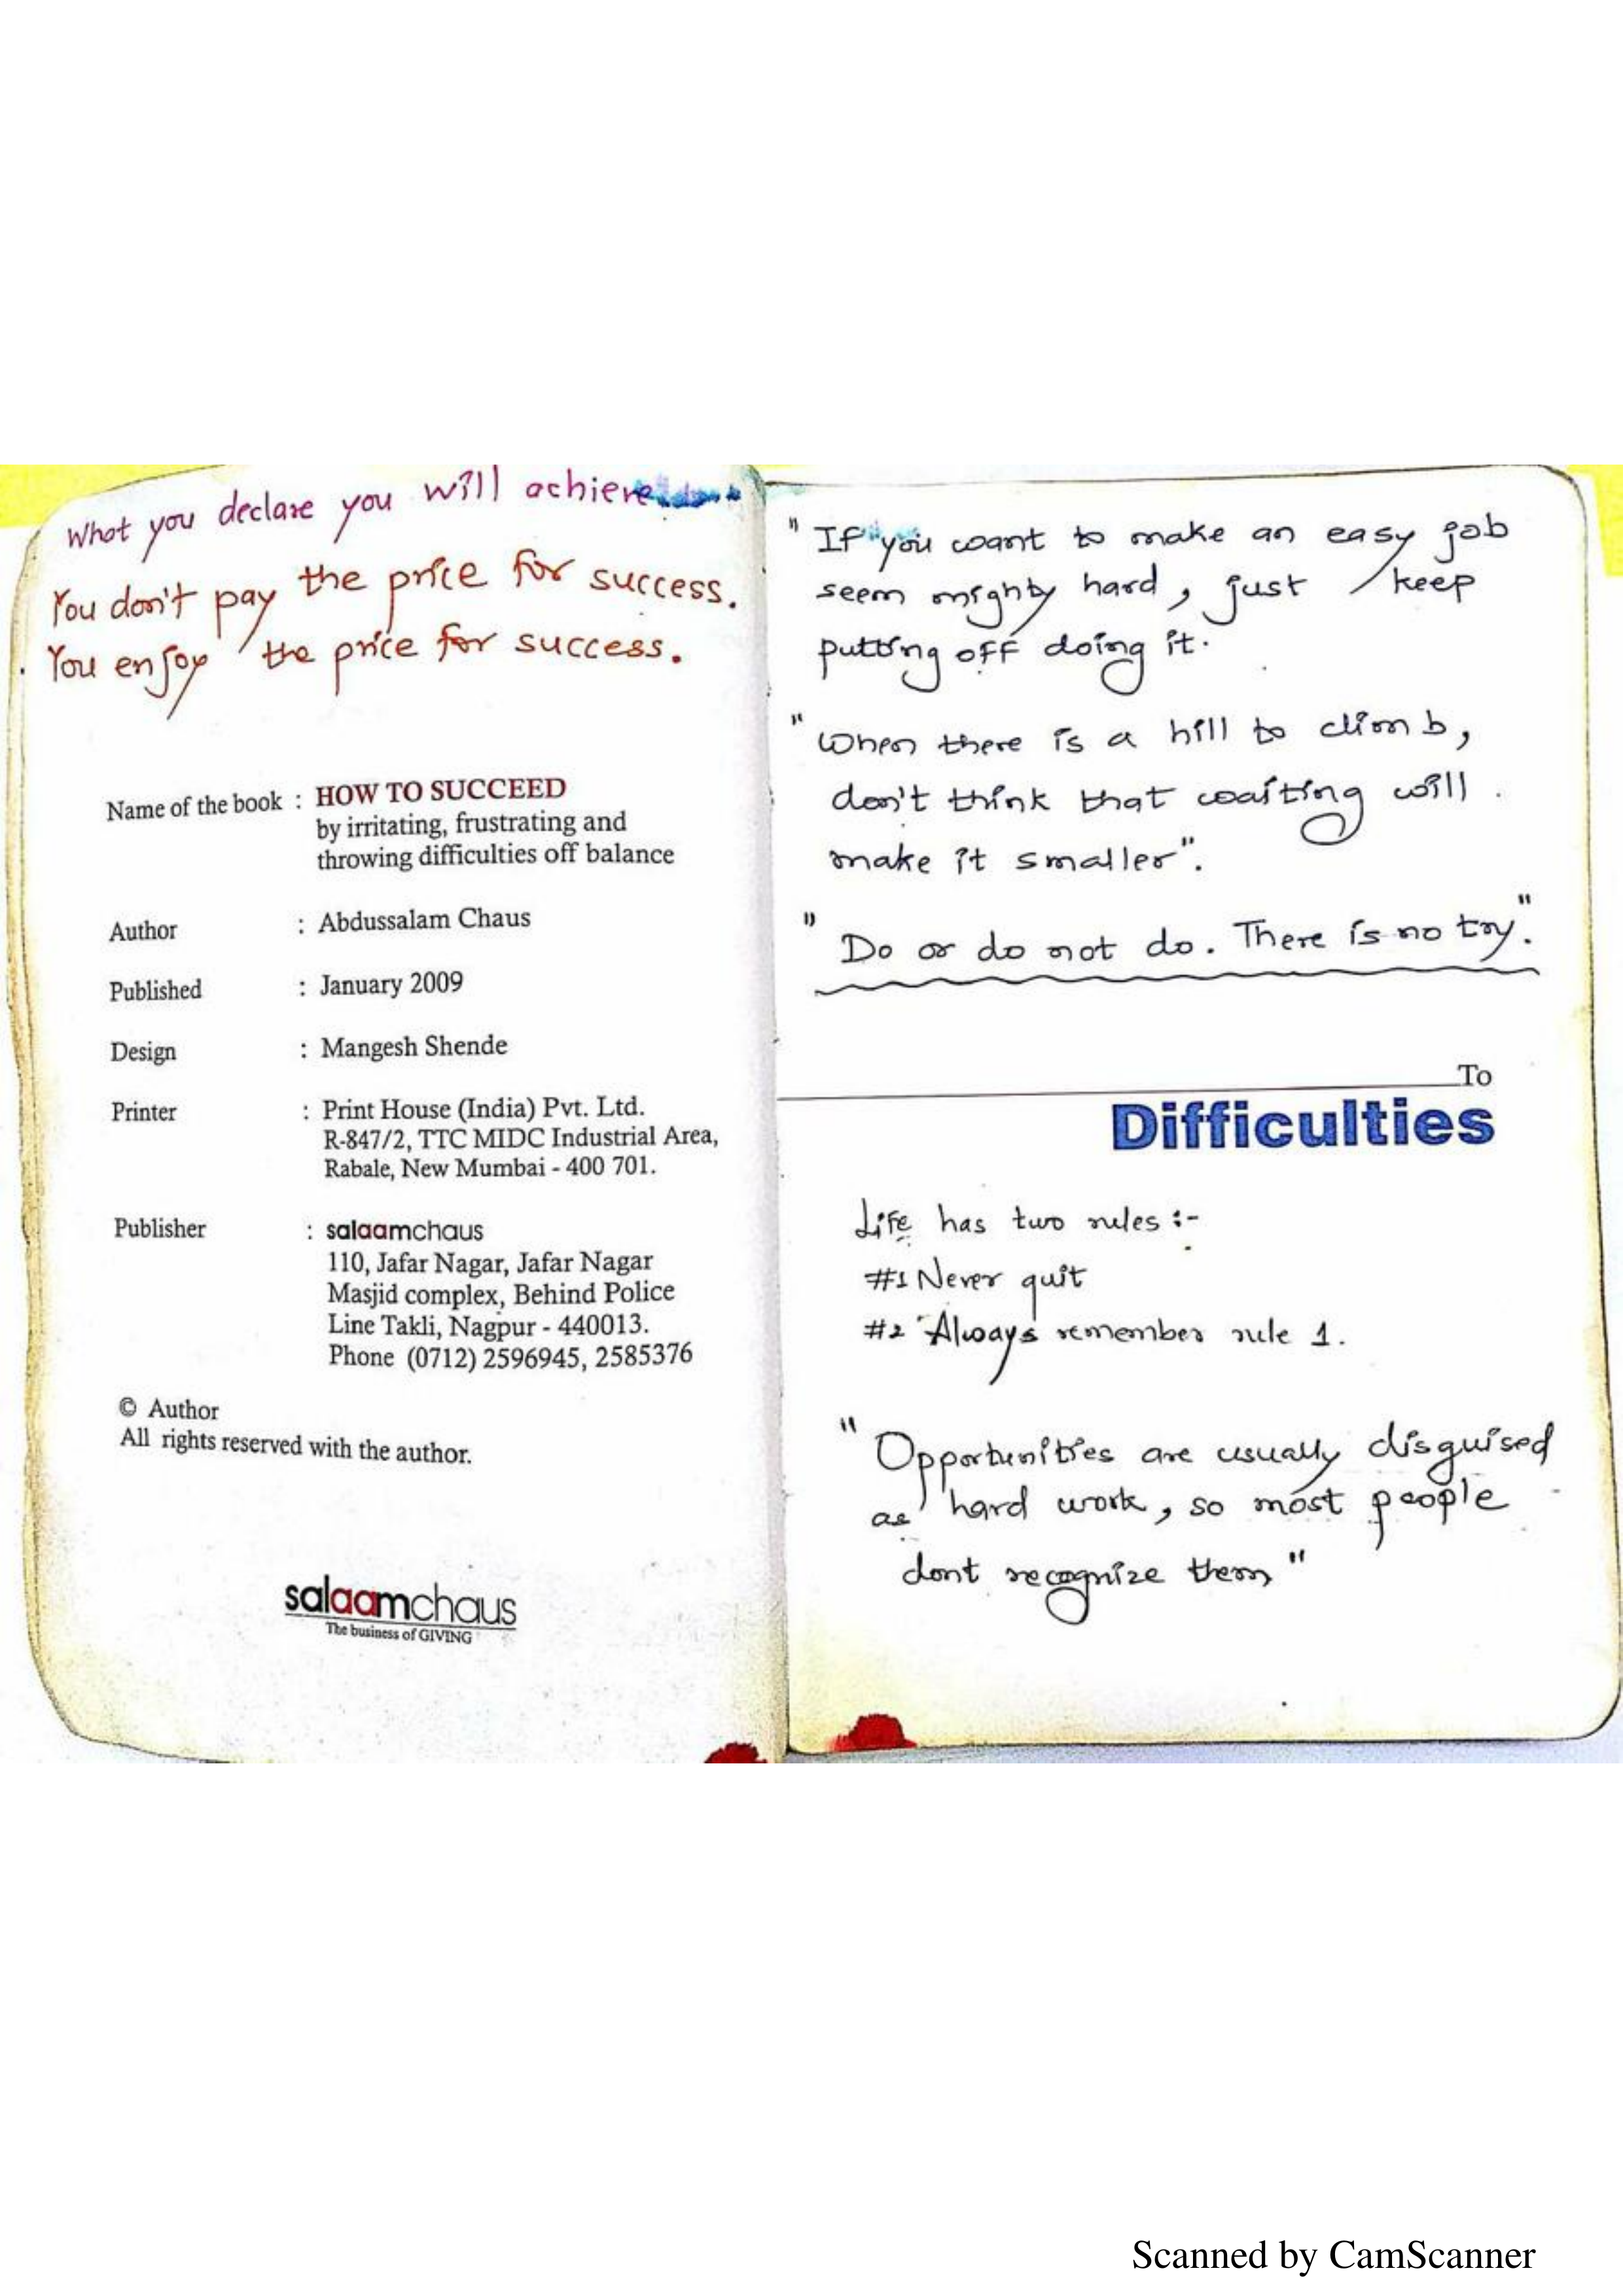 What you declare you will achieve
You don't pay the price for success.
You enjoy the price for success.
Name of the book : HOW TO SUCCEED
by irritating, frustrating and
throwing difficulties off balance
Author : Abdussalam Chaus
Published : January 2009
Design : Mangesh Shende
Printer : Print House (India) Pvt. Ltd.
R-847/2, TTC MIDC Industrial Area,
Rabale, New Mumbai - 400 701.
Publisher : salaamchaus
110, Jafar Nagar, Jafar Nagar
Masjid complex, Behind Police
Line Takli, Nagpur - 440013.
Phone (0712) 2596945, 2585376
© Author
All rights reserved with the author.
salaamchaus
The business of GIVING
"If you want to make an easy job
seem mighty hard, just keep
putting off doing it.
"When there is a hill to climb,
don't think that waiting will
make it smaller".
"Do or do not do. There is no try."
To
Difficulties
Life has two rules :-
#1 Never quit
#2 Always remember rule 1.
"Opportunities are usually disguised
as hard work, so most people
dont recognize them"
Scanned by CamScanner